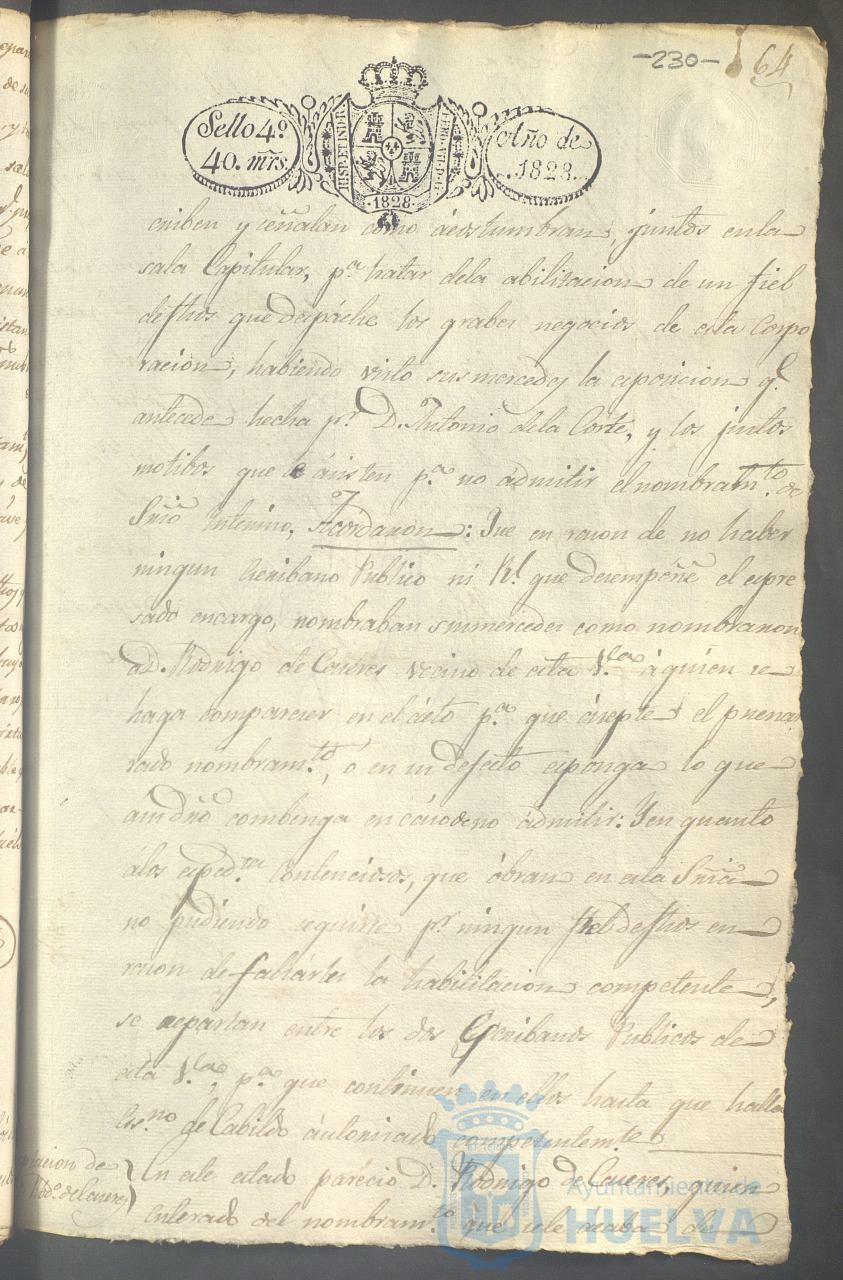 -230-
64
Sello 4º
40. mrs.
HISP. ET IND. R.
1828
Año de
1828.
criben y señalan como ácostumbran, juntos en la
sala Capitular, pª tratar dela abilitacion de un fiel
defhos que despáche los grabes negocios de esta Corpo
racion, habiendo visto sus mercedes la esposicion q.e
antecede hecha pr. D. Antonio dela Corte, y los justos
motibos que le ásisten pª no ádmitir el nombramto. de
Srio Interino, Acordaron: Que en razon de no haber
ningun Escribano Publico ni Rl. que desempeñe el espre
sado encargo, nombraban sus mercedes como nombraron
aD. Rodrigo de Caseres vecino de esta Vª. áquien se
haga comparecer en el ácto pª que ácepte el puena
rado nombramto, ó en su defecto esponga lo que
ásu dro combenga en cáso de no ádmitir: Y en quanto
álos espedtes. Contenciosos, que óbran en esta Sria
no pudiendo seguirse pr ningun fiel defhos en
razon de faltárles la habilitacion competente,
se repartan entre los dos Escribanos Publicos de
ésta Vlla., pª que continuen en ellos hasta que halla
Esno. de Cabildo áutorizado competentemte.
En este estado paréció D. Rodrigo de Caseres, quien
enterado del nombramto que sele acaba de
Ayuntamiento de
HUELVA